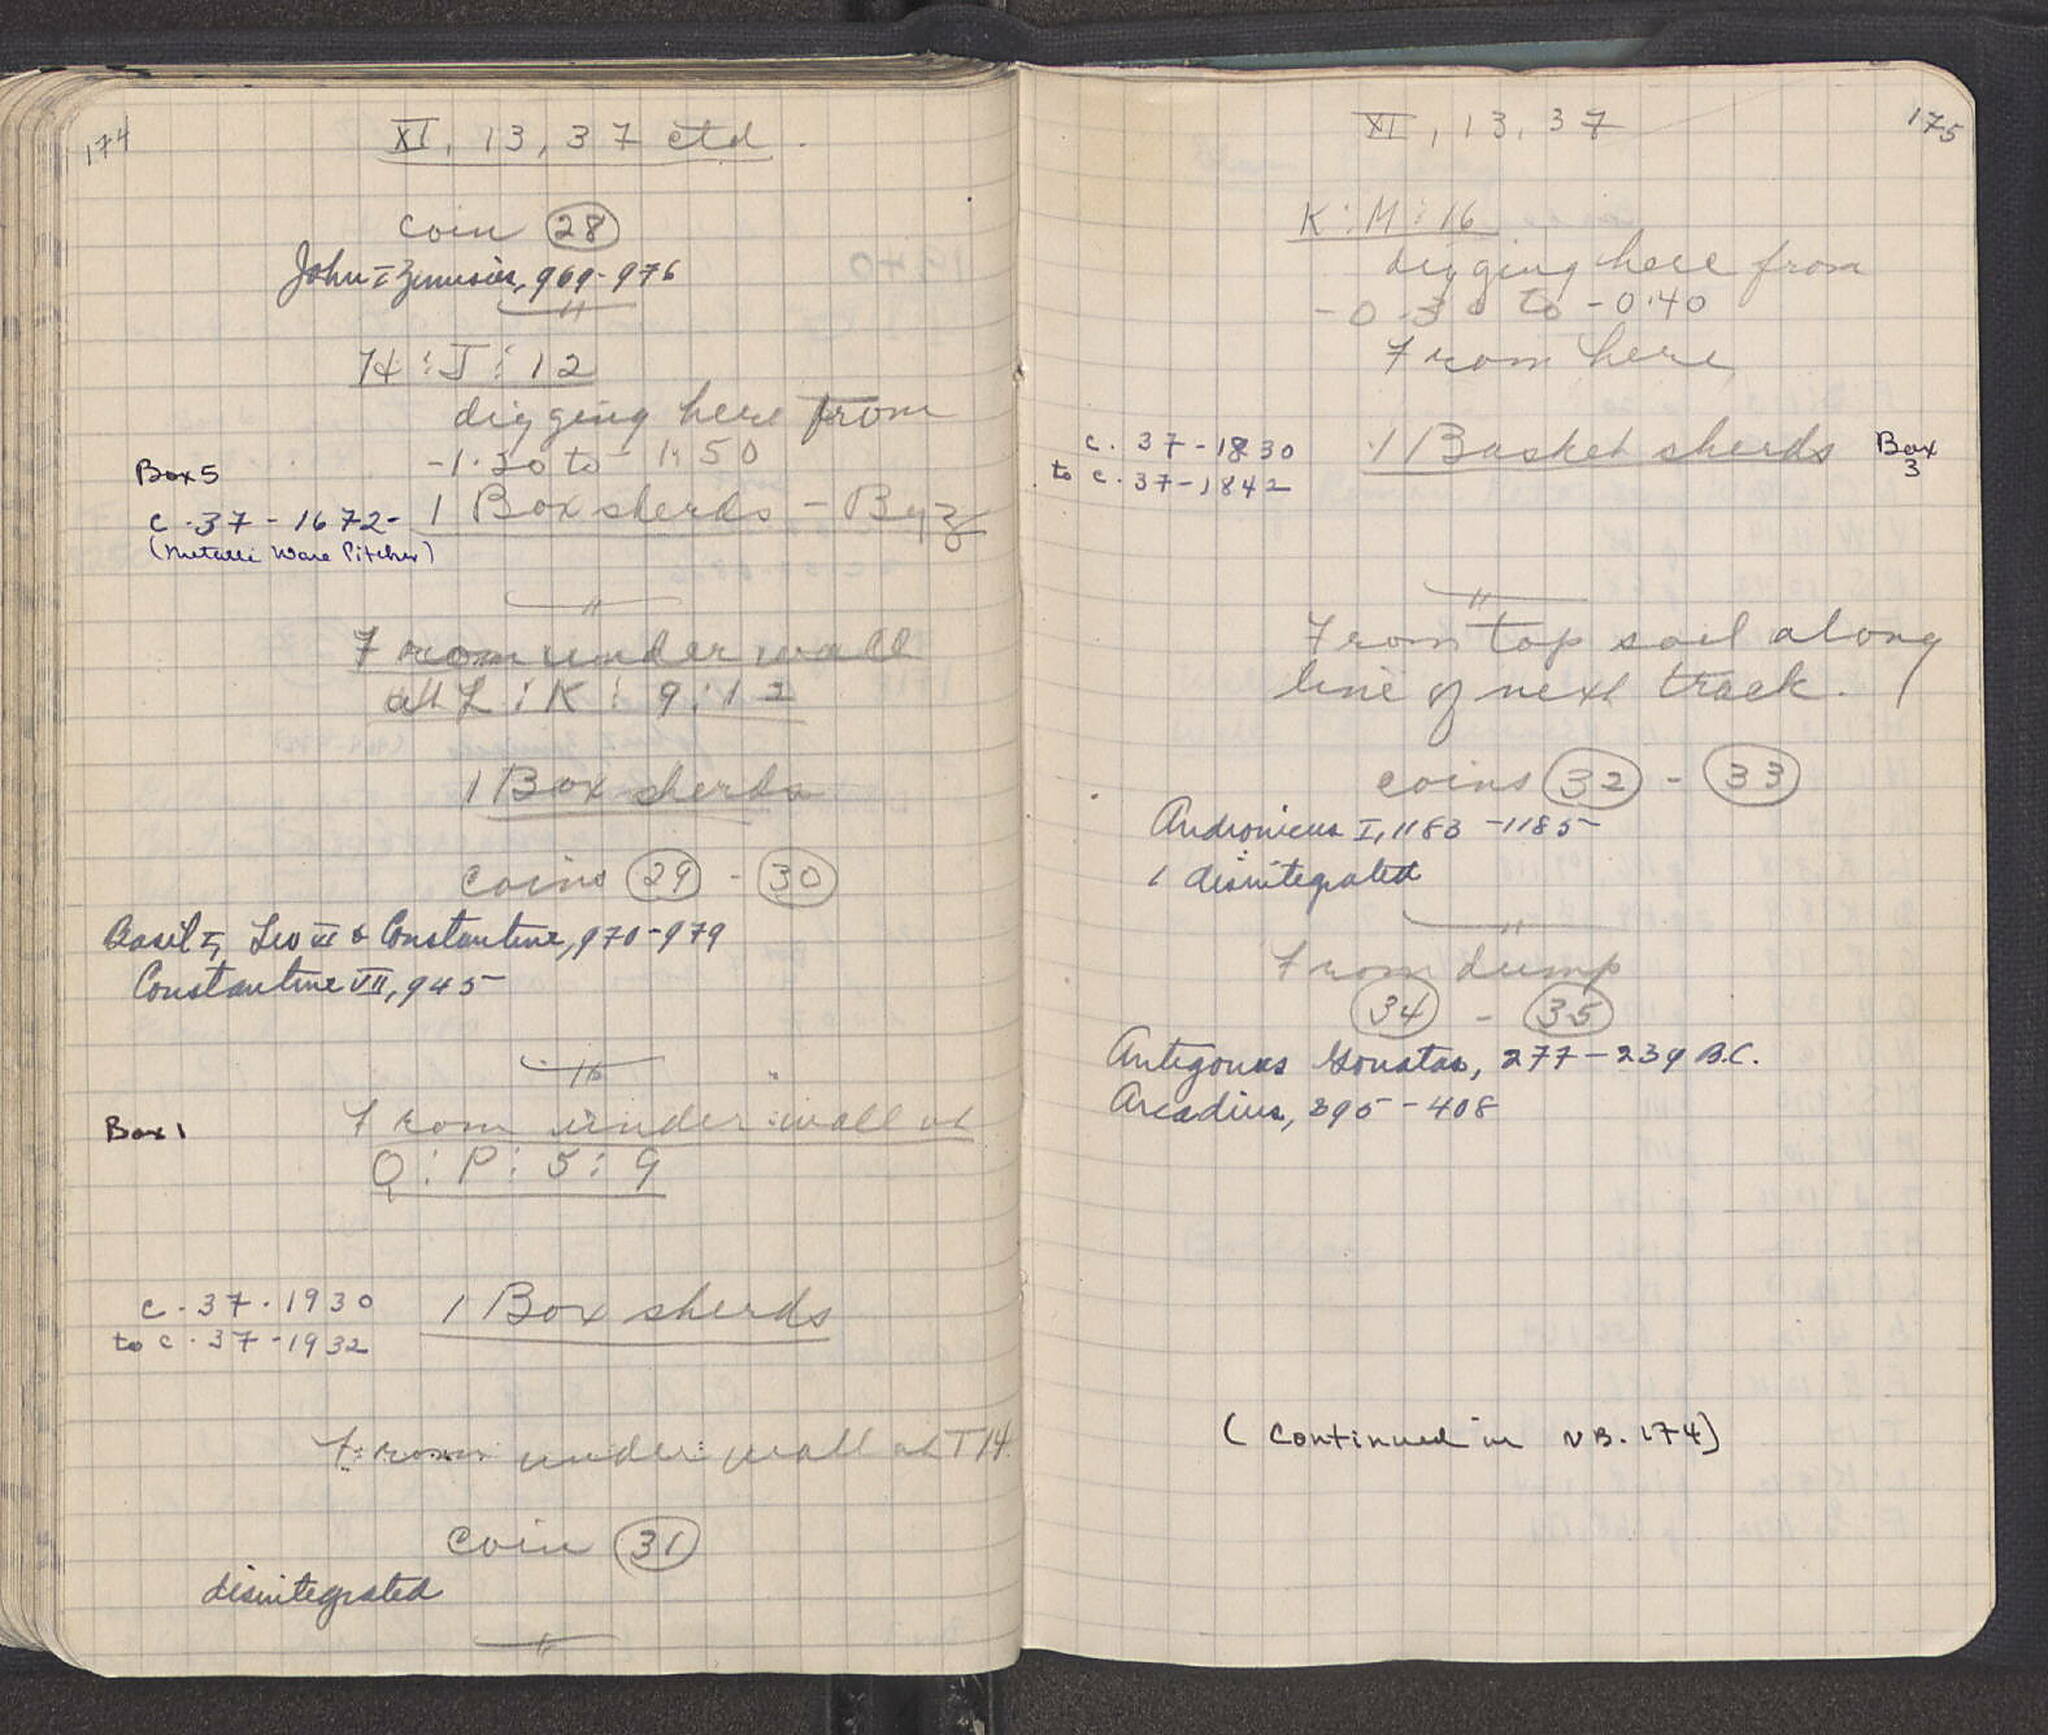 174
XI, 13, 37 ctd.
coin 28
John I Zimisces, 969-976
H:J:12
digging here from
-1.20 to -1.50
Box 5
c.37-1672- 1 Box sherds - Byz
(Metallic Ware Pitcher)
From under wall
at L:K:9:12
1 Box sherds
coins 29 - 30
Basil I, Leo VI & Constantine, 970-979
Constantine VII, 945
Box 1
From under wall at
Q:P:5:9
c.37.1930
to c.37-1932
1 Box sherds
From under wall at T14.
coin 31
disintegrated
175
XI, 13, 37
K:M:16
digging here from
-0.30 to -0.40
From here
c.37-1830
to c.37-1842
1 Basket sherds
Box
3
From top soil along
line of next track.
coins 32 - 33
Andronicus I, 1183-1185
1 disintegrated
From dump
34 - 35
Antigonus Gonatas, 277-239 B.C.
Arcadius, 395-408
(Continued in NB. 174)